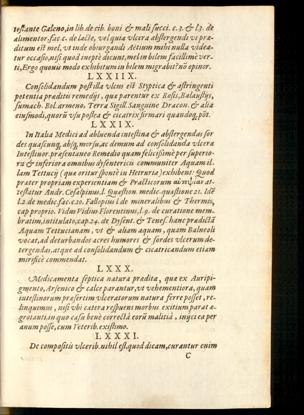 testante Galeno, in lib. de cib. boni & mali succi. c. 3. & l. 3. de
alimentor. fac. c. de lacte, vel quia ulcera abstergendi vi præ-
ditum est mel, vt inde obiurgandi Aëtium mihi nulla videa-
tur occasio, nisi quod ineptè dicunt, mel in bilem facillimè ver-
ti, Ergo quouis modo exhibitum in bilem migrabit? nō opinor.
LXXIIX.
Consolidandum postilla vlcus est Styptica & astringenti
potentia præditi remedijs, qua parentur ex Rosis, Balaustijs,
sumach. Bol. armeno. Terra Sigill. Sanguine Dracon. & alia
eiusmodi, quorū vsu postea & cicatrix firmari quandoq, pōt.
LXXIX.
In Italia Medici ad abluenda intestina & abstergendas sor-
des quascunq, absq, morsu, ac demum ad consolidanda vlcera
Intestinor. præsentaneo Remedio quam felicissimè per superio-
ra & inferiora omnibus dysentericis communiter Aquam il-
lam Tettucij (que oritur sponte in Hetruria) exhibent: Quod
prater propriam experientiam & Practicorum at-
testatur Andr. Cesalpinus, l. Quæstion. medic. quæstione 21. libr
l. 2. de medic. fac. c. 20. Fallopius l. de mineralibus & Thermis,
cap proprio. Vidus Vidius Florentinus, l. 9. de curatione mem-
bratim, intitulato, cap. 24. de Dysent. & Tenes. hanc prædictā
Aquam Tettucianam, vt & aliam aquam, quam Balneoli
vocat, ad deturbandos acres humores & sordes vlcerum de-
tergendas, atque ad consolidandum & cicatricandum etiam
mirificè commendat.
LXXX.
Medicamenta septica natura prædita, qua ex Auripi-
gmento, Arsenico & calce parantur, vt vehementiora, quam
intestinorum præsertim vlceratorum natura ferre posset, re-
linquimus, nisi vbi catera respuens morbus exitium parat a-
grotanti, in quo casu benè correctā eorū malitiā, inijci ea per
anum posse, cum Veterib. existimo.
LXXXI.
De compositis vlcerib. nihil est, quod dicam, curantur enim
C